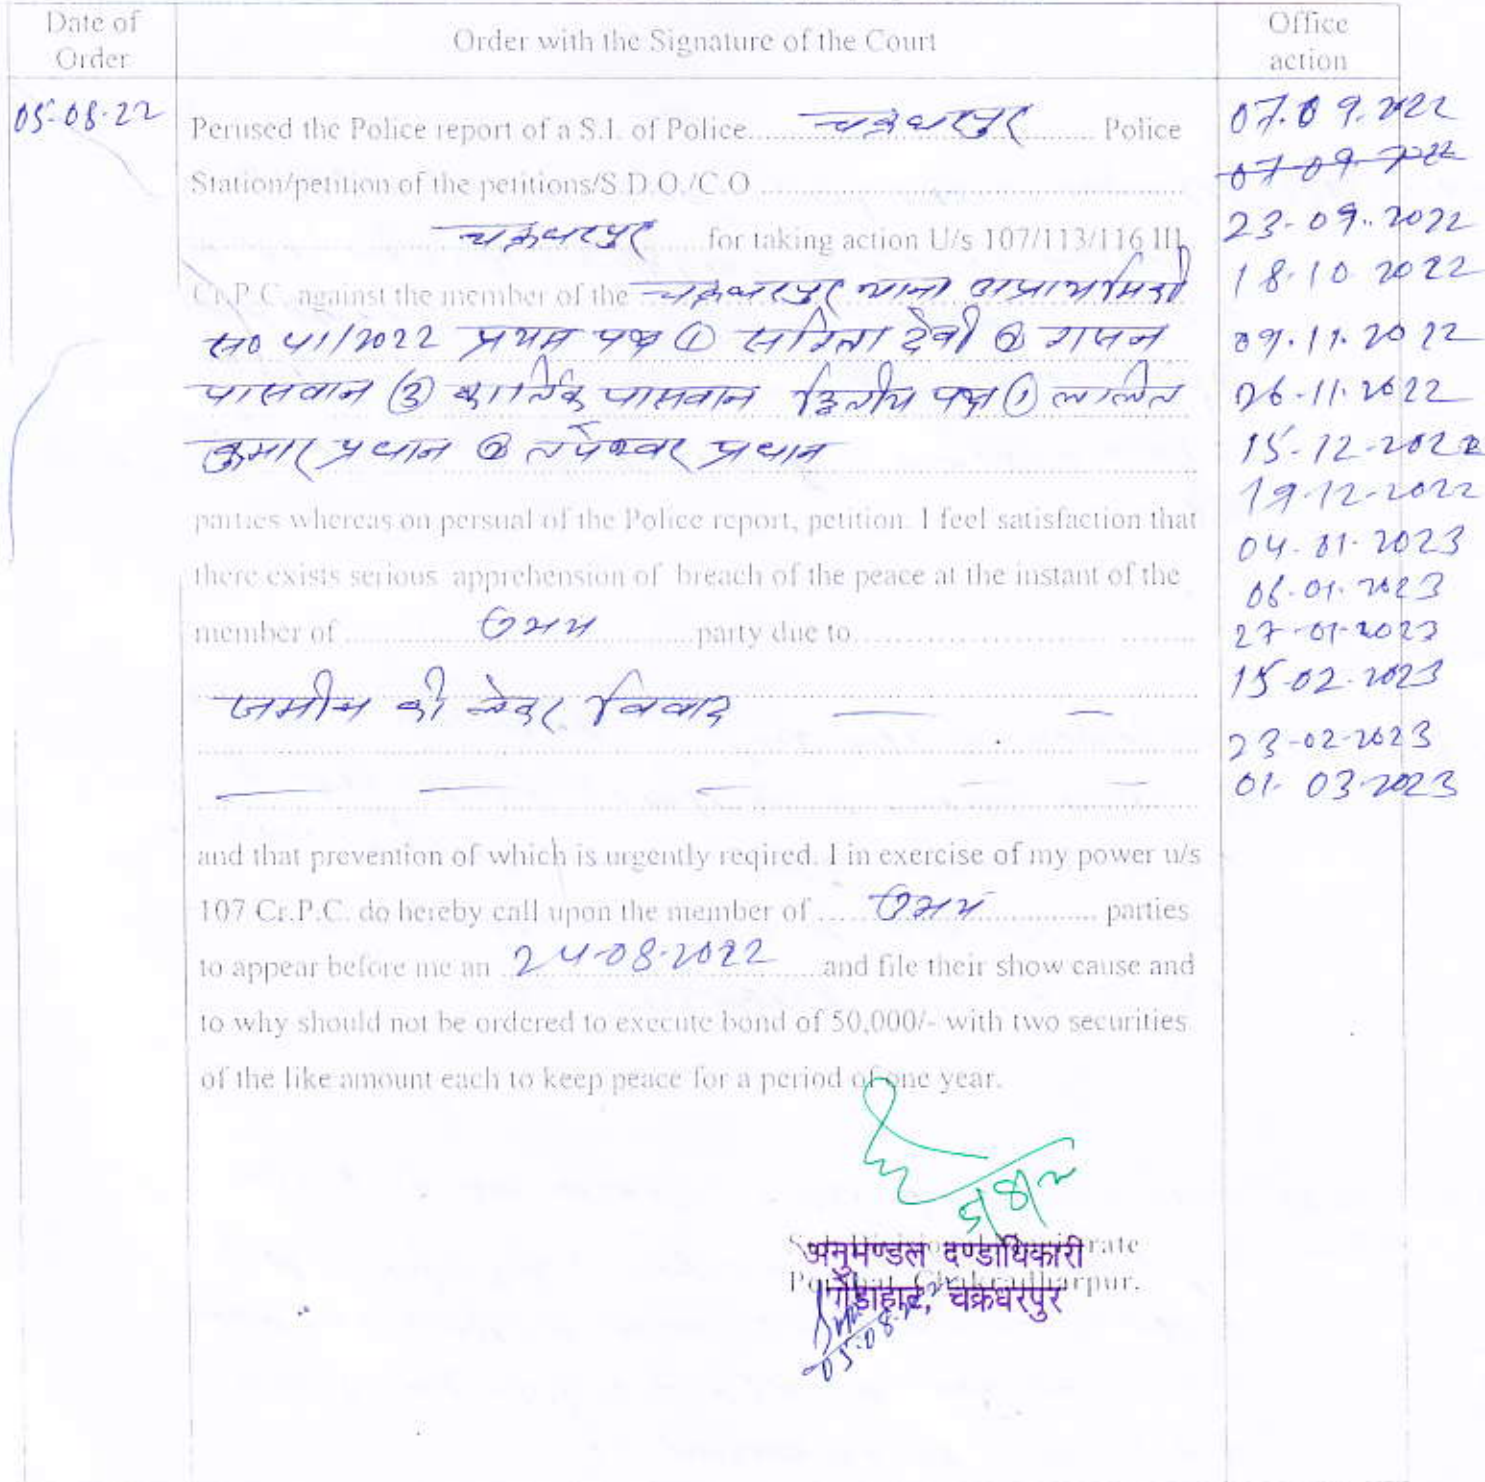 Date of
Order
Order with the Signature of the Court
Office
action
05-08-22
Perused the Police report of a S.I. of Police.......... चक्रधरपुर .......... Police
Station/petition of the petitions/S.D.O./C.O ..........
चक्रधरपुर .......... for taking action U/s 107/113/116 III
Cr.P.C. against the member of the चक्रधरपुर थाना अप्राथमिकी
सं० 41/2022 प्रथम पक्ष ① सरिता देवी ②
पासवान ③ कार्तिक पासवान द्वितीय पक्ष ① ललित
कुमार प्रधान ② तपेश्वर प्रधान
parties whereas on persual of the Police report, petition. I feel satisfaction that
there exists serious apprehension of breach of the peace at the instant of the
member of .......... उभय .......... party due to ..........
जमीन को लेकर विवाद
and that prevention of which is urgently reqired. I in exercise of my power u/s
107 Cr.P.C. do hereby call upon the member of ..... उभय .......... parties
to appear before me an 24-08-2022 ..... and file their show cause and
to why should not be ordered to execute bond of 50,000/- with two securities
of the like amount each to keep peace for a period of one year.
5/8/22
Sub Divisional Magistrate
अनुमण्डल दण्डाधिकारी
Porahat, Chakradharpur.
पोड़ाहाट, चक्रधरपुर
05-08-22
07.09.2022
07-09-2022
23-09-2022
18-10 2022
09.11.2022
26-11-2022
15-12-2022
19-12-2022
04-01-2023
06-01-2023
27-01-2023
15-02-2023
23-02-2023
01-03-2023